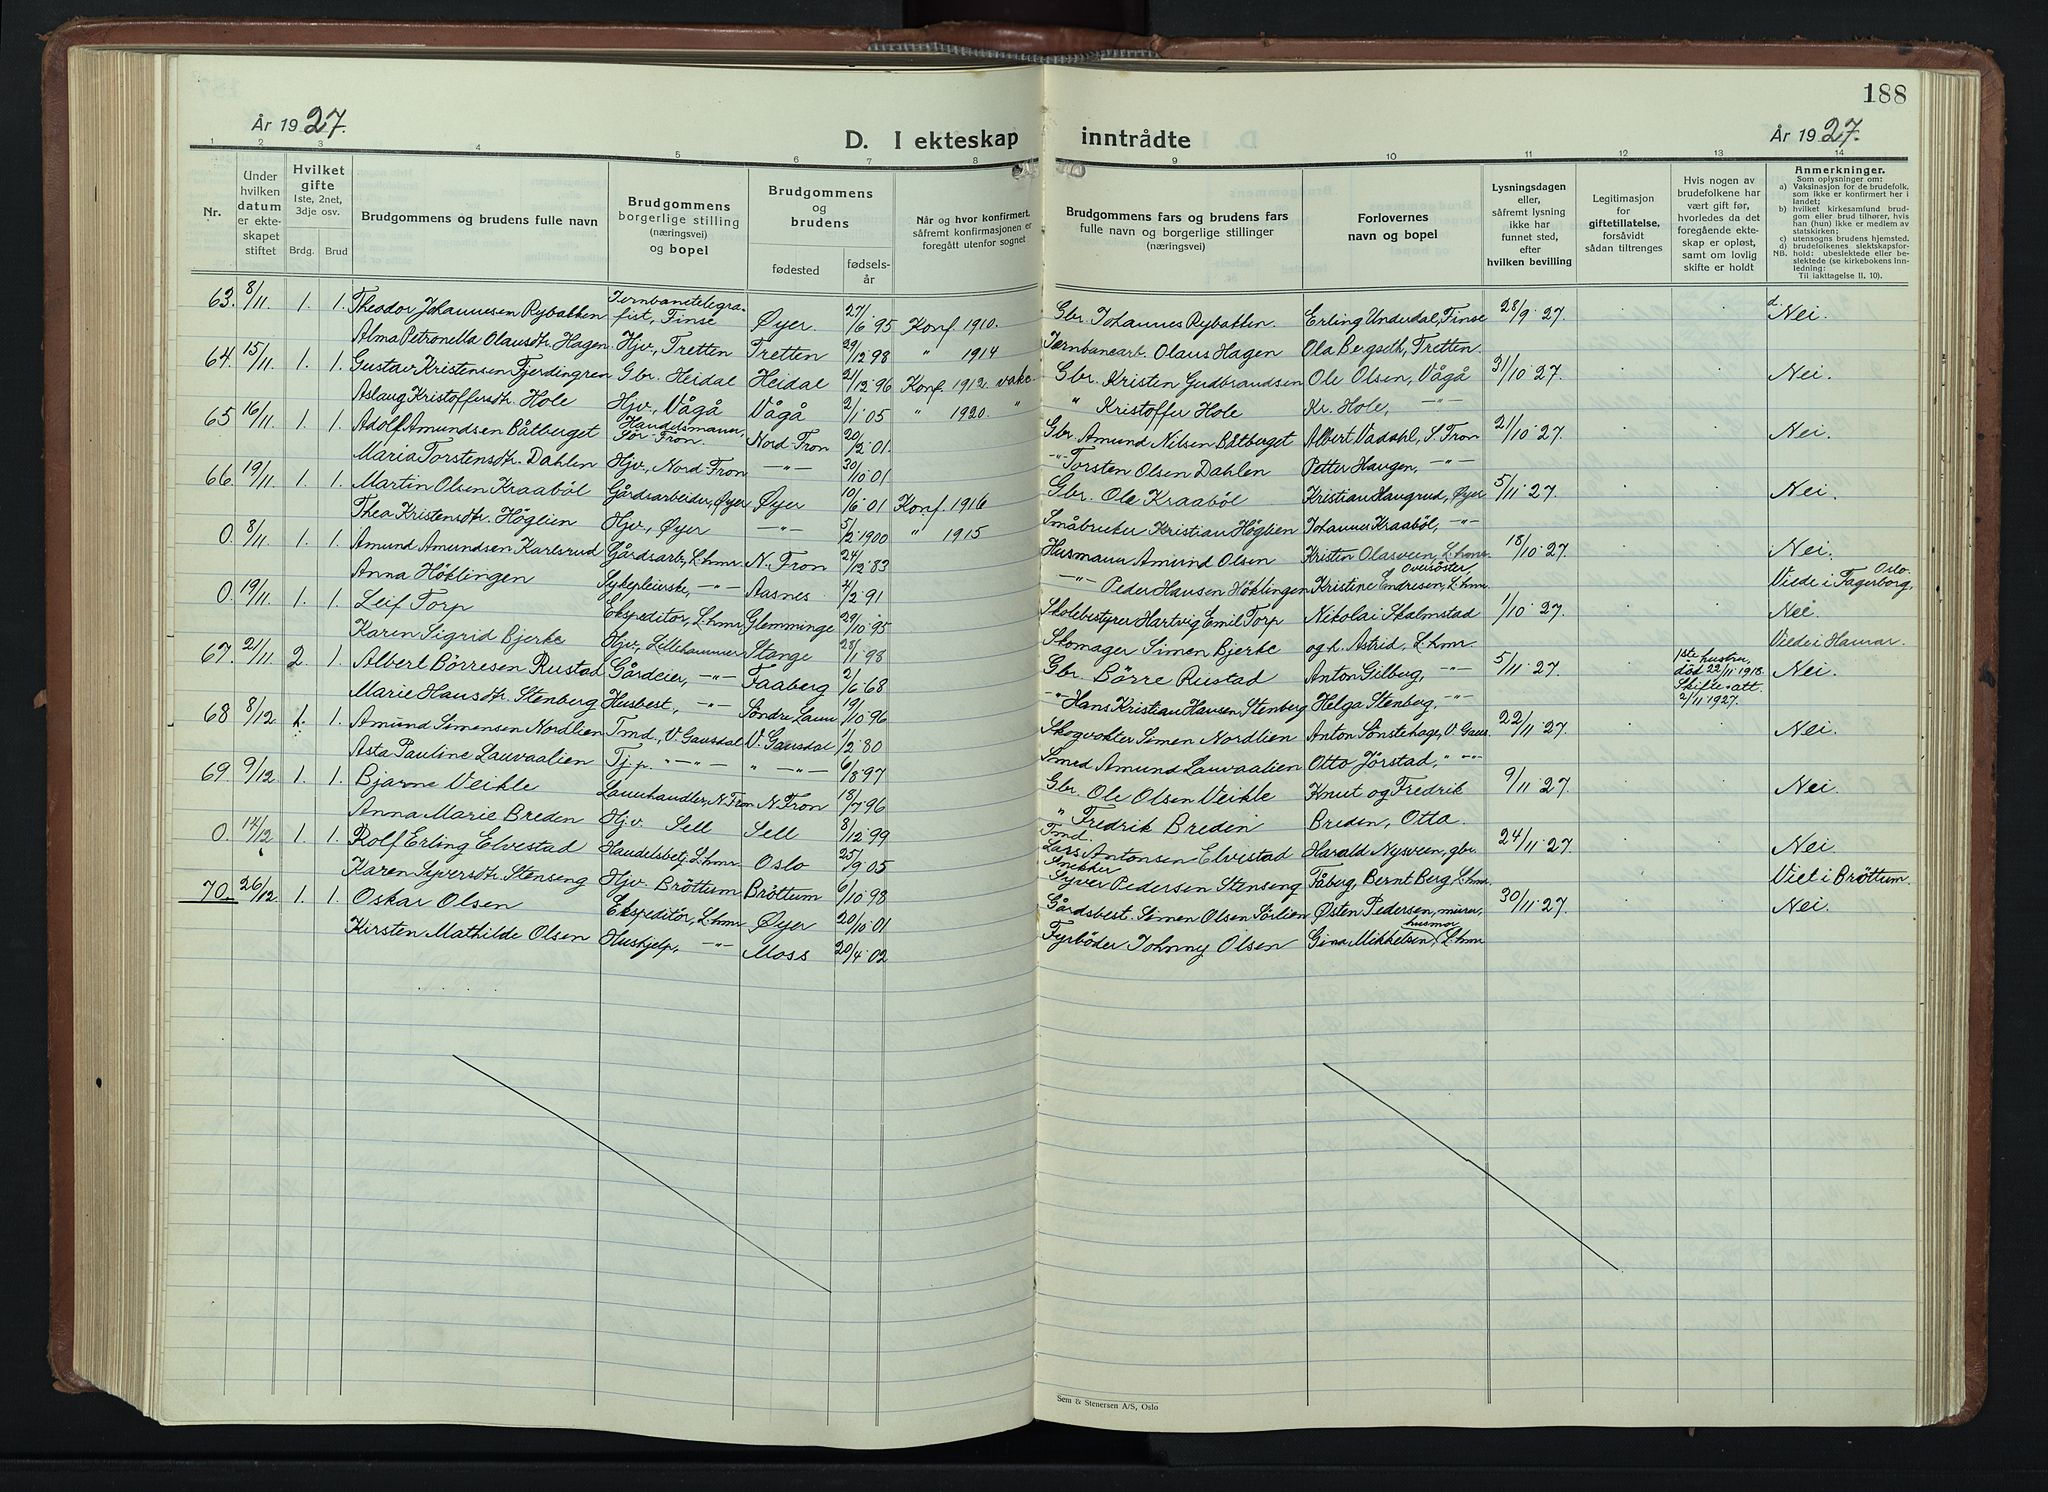 188
År 1927.
D. I ekteskap inntrådte
År 1927.
1 2 3 4 5 6 7 8 9 10 11 12 13 14
Nr.
Under hvilken datum er ekteskapet stiftet
Hvilket gifte 1ste, 2net, 3dje osv.
Brdg. Brud
Brudgommens og brudens fulle navn
Brudgommens borgerlige stilling (næringsvei) og bopel
Brudgommens og brudens
fødested
fødselsår
Når og hvor konfirmert, såfremt konfirmasjonen er foregått utenfor sognet
Brudgommens fars og brudens fars fulle navn og borgerlige stillinger (næringsvei)
Forlovernes navn og bopel
Lysningsdagen eller, såfremt lysning ikke har funnet sted, efter hvilken bevilling
Legitimasjon for giftetillatelse, forsåvidt sådan tiltrenges
Hvis nogen av brudefolkene har vært gift før, hvorledes da det foregående ekteskap er opløst, samt om lovlig skifte er holdt
Anmerkninger.
Som oplysninger om:
a) Vaksinasjon for de brudefolk, som ikke er konfirmert her i landet;
b) hvilket kirkesamfund brudgom eller brud tilhører, hvis han (hun) ikke er medlem av statskirken;
c) utensogns brudens hjemsted.
d) brudefolkenes slektskapsforhold: ubeslektede eller beslektede (se kirkebokens innledning:
NB. Til iakttagelse II, 10).
63. 8/11 1. 1. Theodor Johannesen Rybakken Jernbanetelegrafist, Finse Øyer. 27/6 95 Konf. 1910. Gbr. Johannes Rybakken. Erling Underdal, Finse 28/9 27. d. Nei.
Alma Petronella Olausdtr. Hagen Hjv., Tretten Tretten 29/12 98 " 1914 Jernbanearb. Olaus Hagen Ola Bergseth, Tretten.
64. 15/11. 1. 1. Gustav Kristensen Fjerdingren Gbr. Heidal Heidal 21/12 96 Konf. 1912. Gbr. Kristen Gudbrandsen Ole Olsen, Vågå 31/10 27. Nei.
Aslaug Kristoffersdtr. Hole Hjv., Vågå Vågå 2/1 05 " 1920. " " Kristoffer Hole Kr. Hole, —"—
65 16/11. 1. 1. Adolf Amundsen Båtberget Handelsmann, Sör-Fron. Nord-Fron 20/2 01. Gbr. Amund Nilsen Båtberget Albert Vadahl, S. Fron 21/10 27. Nei.
Maria Torstensdtr. Dahlen Hjv., Nord-Fron —"— 30/10 01 -"- Torsten Olsen Dahlen Petter Haugen, —"—
66. 19/11 1. 1. Martin Olsen Kraaböl Gårdsarbeider, Øyer Øyer 10/6 01 Konf. 1916 Gbr. Ole Kraaböl Kristian Haugrud, Øyer 5/11 27. Nei.
Thea Kristensdtr. Höglien Hjv., Øyer —"— 5/2 1900 " 1915 Småbruker Kristian Höglien Johannes Kraaböl, —"—
0. 8/11. 1. 1. Amund Amundsen Karlsrud Gårdsarb., L.hmr. N. Fron 24/12 83 Husmann Amund Olsen Kristen Olasveen, L.hmr. 18/10 27. Nei.
Anna Höklingen Sykepleierske, —"— Aasnes 4/2 91 —"— Peder Hansen Höklingen Kristine Endresen, Oversöster L.hmr. Viede i Fagerborg, Oslo.
0. 19/11. 1. 1. Leif Torp Ekspeditör, L.hmr. Glemminge 29/10 95 Skolebestyrer Hartvig Emil Torp Nikolai Skalmstad 1/10 27. Nei.
Karen Sigrid Bjerke Hjv., Lillehammer Stange 28/1 98 Skomager Simen Bjerke og h. Astrid, L.hmr. Viede i Hamar.
67. 21/11 2. 1. Albert Börresen Rustad Gårdeier, —"— Faaberg 2/6 68 Gbr. Börre Rustad Anton Gilberg, —"— 5/11 27. 1ste hustru, död 22/11 1918. Skifte-att. 2/11 1927. Nei.
Marie Hansdtr. Stenberg Husbest., —"— Söndre Laun 19/10 96 -"- Hans Kristian Hansen Stenberg Helga Stenberg, —"—
68 8/12. 1. 1. Amund Simensen Nordlien Tmd., V. Gausdal V. Gausdal 11/2 80 Skogvokter Simen Nordlien Anton Sönstehage, V. Gaus. 22/11 27. Nei.
Asta Pauline Lauvaalien Tj.p. —"—"— " —"— 6/8 97 Smed Amund Lauvaalien Otto Jörstad, " —"—
69. 9/12 1. 1. Bjarne Veikle Launhandler, N. Fron N. Fron 18/7 96 Gbr. Ole Olsen Veikle Knut og Fredrik 9/11 27. Nei.
Anna Marie Breden Hjv. Sell Sell 8/12 99 " Fredrik Breden Breden, Otta.
0. 14/12 1. 1. Rolf Erling Elvestad Handelsbetj. L.hmr. Oslo 25/9 05 Tmd. Lars Antonsen Elvestad Harald Nysveen, gbr. 24/11 27. Nei.
Karen Syversdtr. Stenseng Hjv. Bröttum Bröttum 6/10 98 Snekker Syver Pedersen Stenseng Fåberg, Bernt Berg, L.hmr. Viet i Bröttum.
70. 26/12 1. 1. Oskar Olsen Ekspeditör, L.hmr. Øyer 20/10 01 Gårdsbest. Simen Olsen Sörlien Østen Pedersen, murer, 30/11 27. Nei.
Kirsten Mathilde Olsen Hushjelp, —"— Moss 20/4 02 Fyrböder Johnny Olsen Gina Mikkelsen, husmor L.hmr.
Sem & Stenersen A/S, Oslo